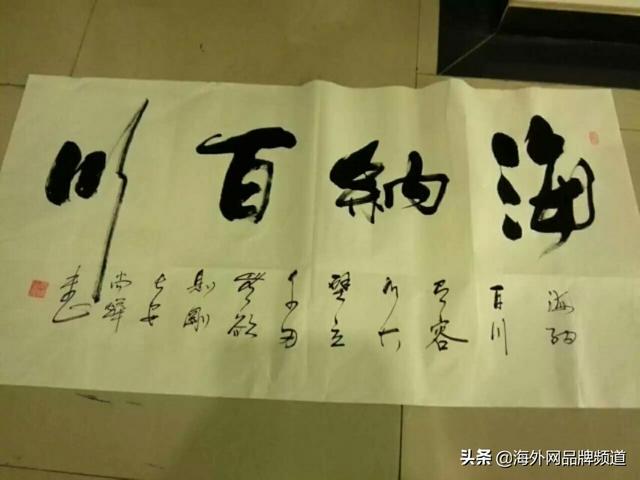 海納百川
海納
百川
有容
乃大
壁立
千仞
無欲
則剛
长安
尚
書
头条 @海外网品牌频道